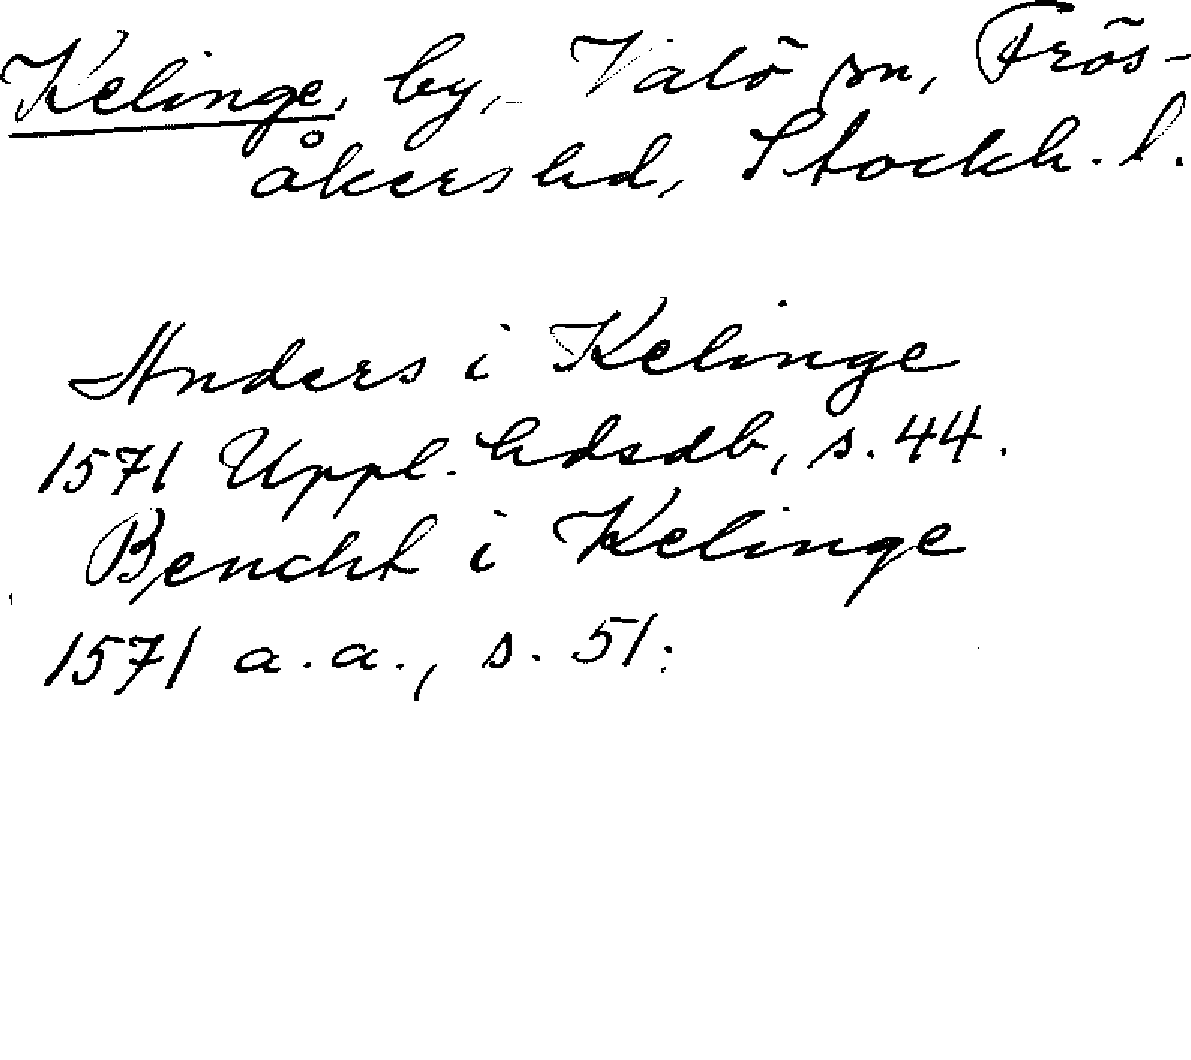 Kelinge, by, Valö sn, Frös-
åkers hd, Stockh. l.
Anders i Kelinge
1571 Uppl. hdsdb, s. 44.
Bencht i Kelinge
1571 a.a., s. 51.